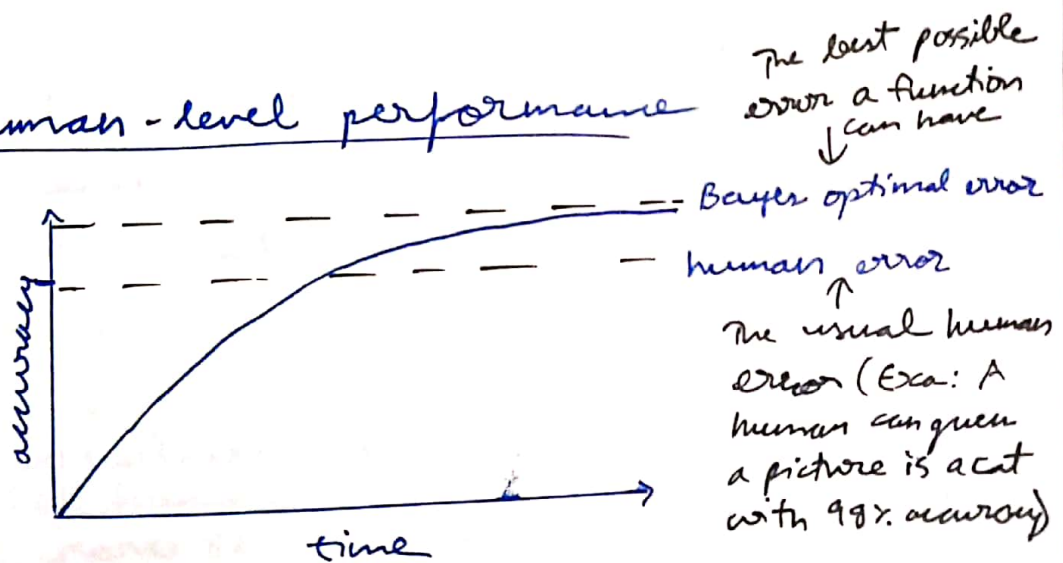 uman-level performance
The best possible
error a function
can have
Bayes optimal error
human error
The usual human
error (Exa: A
human can guess
a picture is a cat
with 98% accuracy)
accuracy
time